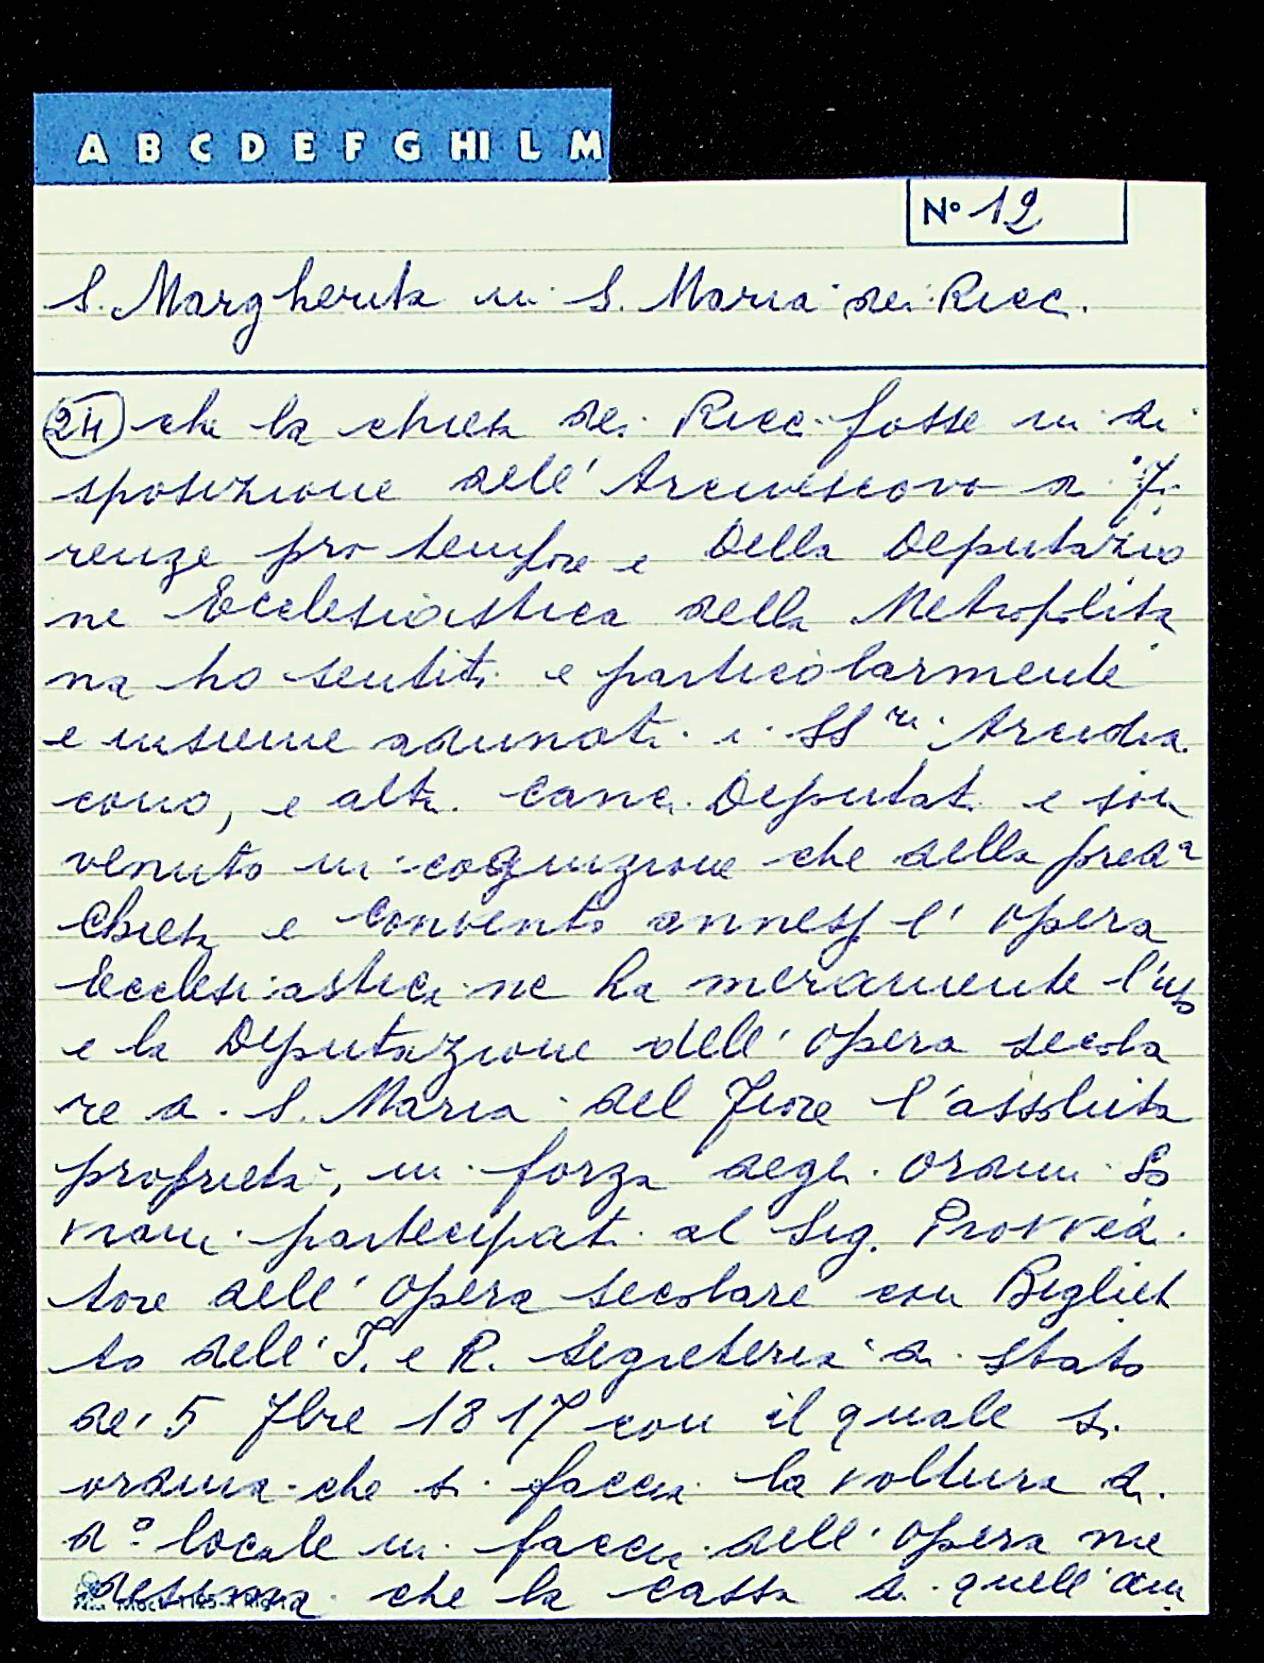 A B C D E F G HI L M
N° 12
S. Margherita in S. Maria dei Ricci.
24 che la chiesa dei Ricci fosse in di
sposizione dell' Arcivescovo di Fi
renze pro tempore e Della Deputazio
ne Ecclesiastica della Metropolita
na ho sentiti e particolarmente
e insieme adunati i SSri Arcidia
cono, e altri Canci Deputati e son
venuto in cognizione che della preda
Chiesa e Convento annessi l' opera
Ecclesiastica ne ha meramente l'uso
e la Deputazione dell' opera secola
re di S. Maria del Fiore l'assoluta
proprietà, in forza degli ordini So
vrani partecipati al Sig. Provvedi
tore dell' opera secolare con Bigliet
to dell' I. e R. Segreteria di Stato
dei 5 7bre 1817 con il quale si
ordina che si faccia la voltura di
do locale in faccia dell' opera me
desima che la cassa di quell' am